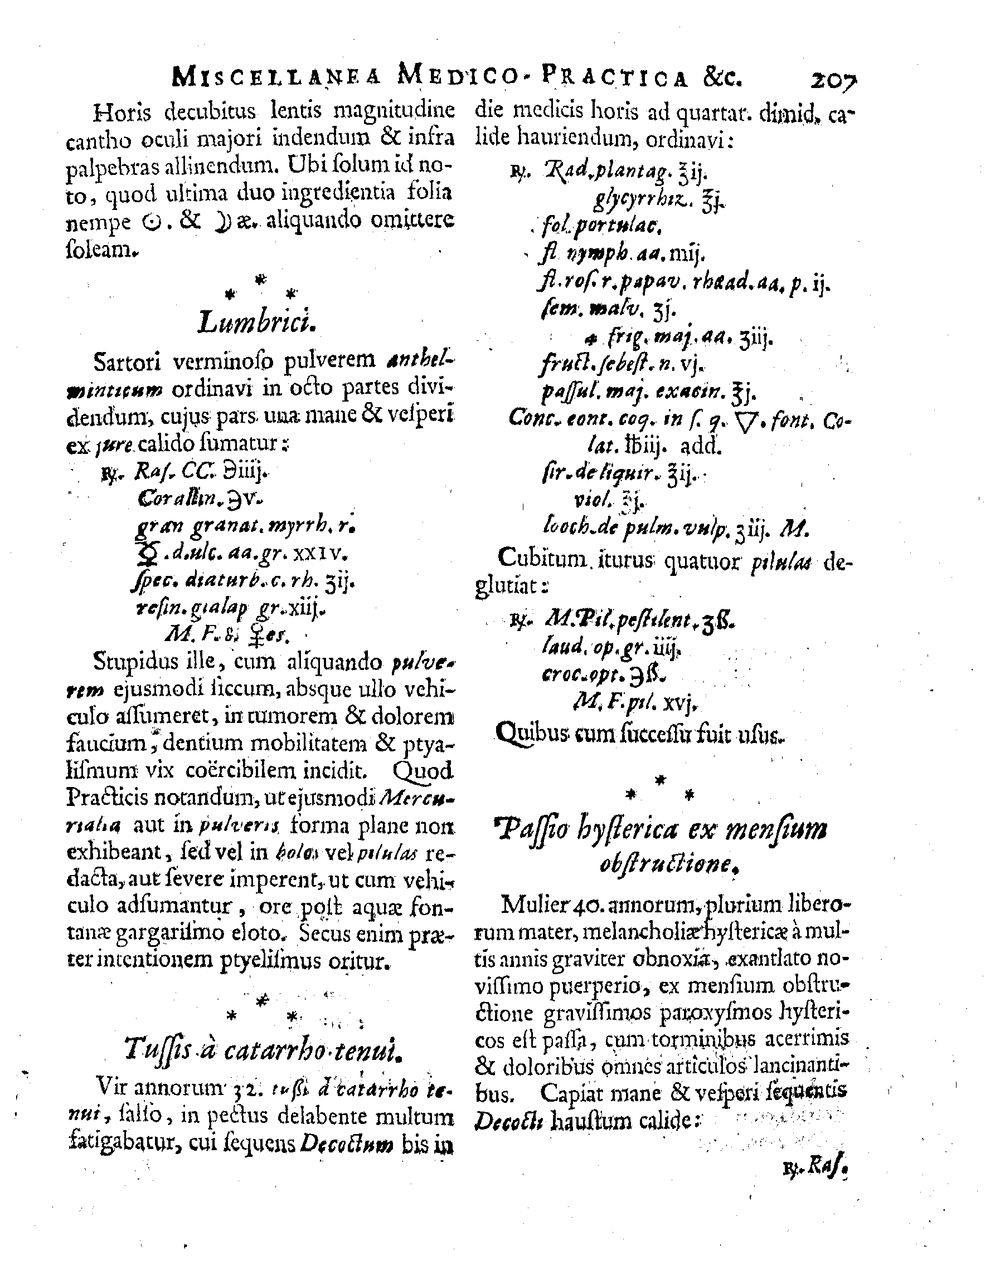 MISCELLANEA MEDICO-PRACTICA &c. 207
Horis decubitus lentis magnitudine
cantho oculi majori indendum & infra
palpebras allinendum. Ubi ſolum id no-
to, quod ultima duo ingredientia folia
nempe ☉. & ☽æ. aliquando omittere
ſoleam.
* * *
Lumbrici.
Sartori verminoſo pulverem anthel-
minticum ordinavi in octo partes divi-
dendum, cujus pars una mane & veſperi
ex jure calido ſumatur:
℞. Raſ. CC. ℈iiij.
Corallin. ℈v.
gran granat. myrrh. r.
☿.d.ulc. aa. gr. xxiv.
ſpec. diaturb. c. rh. ʒij.
reſin. gialap gr. xiij.
M. F. 8. ♀es.
Stupidus ille, cum aliquando pulve-
rem ejusmodi ſiccum, absque ullo vehi-
culo aſſumeret, in tumorem & dolorem
faucium, dentium mobilitatem & ptya-
liſmum vix coërcibilem incidit. Quod
Practicis notandum, ut ejusmodi Mercu-
rialia aut in pulveris forma plane non
exhibeant, ſed vel in bolos vel pilulas re-
dacta, aut ſevere imperent, ut cum vehi-
culo adſumantur, ore poſt aquæ fon-
tanæ gargariſmo eloto. Secus enim præ-
ter intentionem ptyeliſmus oritur.
* * *
Tuſſis à catarrho tenui.
Vir annorum 32. tuſſi à catarrho te-
nui, ſalſo, in pectus delabente multum
fatigabatur, cui ſequens Decoctum bis in
die medicis horis ad quartar. dimid. ca-
lide hauriendum, ordinavi:
℞. Rad. plantag. ℥ij.
glycyrrhiz. ℥j.
fol. portulac.
fl nymph. aa. mij.
fl. roſ. r. papav. rhœad. aa. p. ij.
ſem. malv. ʒj.
4 frig. maj. aa. ʒiij.
fruct. ſebeſt. n. vj.
paſſul. maj. exacin. ℥j.
Conc. cont. coq. in ſ. q. ▽. font. Co-
lat. ℔iij. add.
ſir. de liquir. ℥ij.
viol. ℥j.
looch. de pulm. vulp. ʒiij. M.
Cubitum iturus quatuor pilulas de-
glutiat:
℞. M. Pil. peſtilent. ʒß.
laud. op. gr. iiij.
croc. opt. ℈ß.
M. F. pil. xvj.
Quibus cum ſucceſſu fuit uſus.
* * *
Paſſio hyſterica ex menſium
obſtructione.
Mulier 40. annorum, plurium libero-
rum mater, melancholiæ hyſtericæ à mul-
tis annis graviter obnoxia, exantlato no-
viſſimo puerperio, ex menſium obſtru-
ctione graviſſimos paroxyſmos hyſteri-
cos eſt paſſa, cum torminibus acerrimis
& doloribus omnes articulos lancinanti-
bus. Capiat mane & veſperi ſequentis
Decocti hauſtum calide:
℞. Raſ.